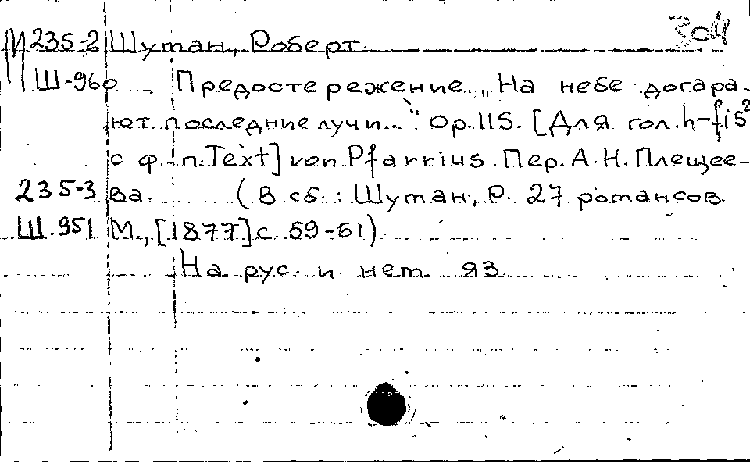 304
М 235-2 Шуман, Роберт
Ш-960 Предостережение „На небе догара-
ют последние лучи..." Ор. 115. [Для гол. h-fis²
с ф-п. Text] von Pfarrius. Пер. А. Н. Плещее-
235-3 ва. (В сб.: Шуман, Р. 27 романсов.
Ш 951 М., [1877] с. 59-61)
На рус. и нем. яз